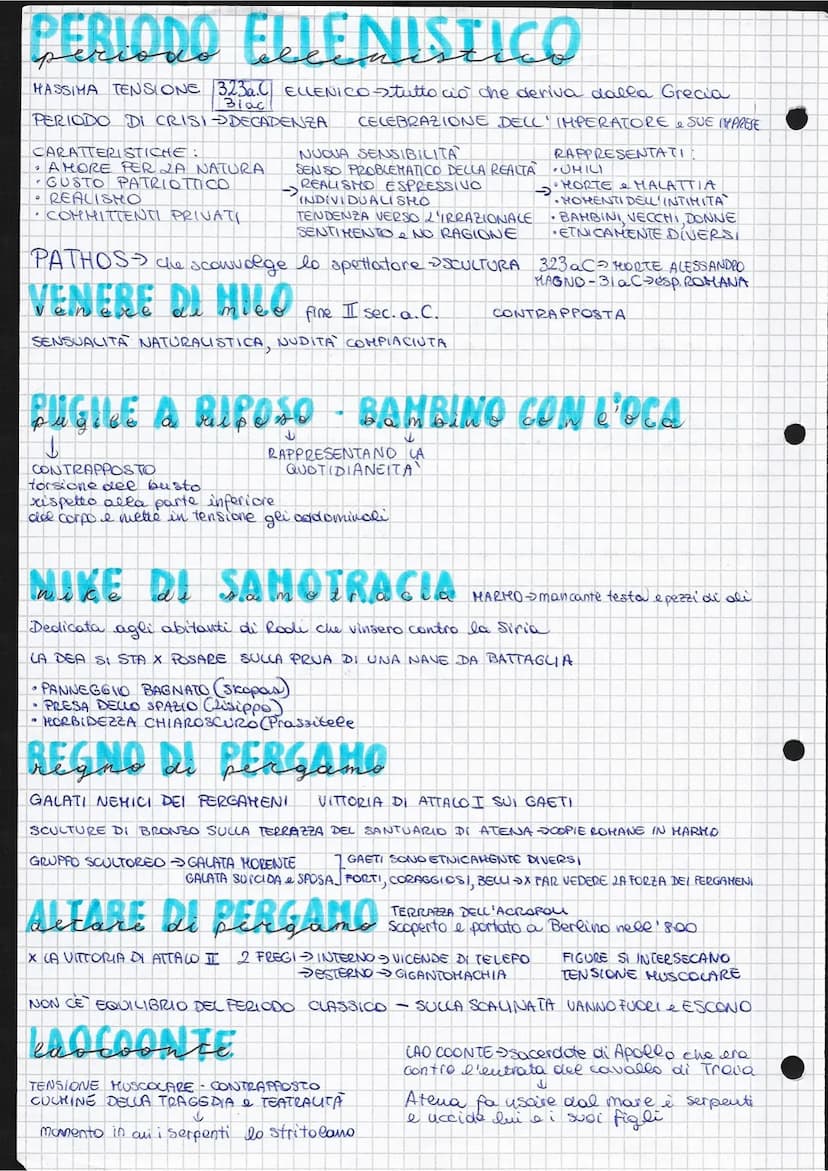 PERIODO ELLENISTICO
periodo ellenistico
MASSIMA TENSIONE 323a.C ELLENICO→tutto ciò che deriva dalla Grecia
31ac
PERIODO DI CRISI→DECADENZA CELEBRAZIONE DELL'IMPERATORE e SUE IMPRESE
CARATTERISTICHE:
• AMORE PER LA NATURA
• GUSTO PATRIOTTICO
• REALISMO
• COMMITTENTI PRIVATI
NUOVA SENSIBILITÀ
SENSO PROBLEMATICO DELLA REALTÀ
→REALISMO ESPRESSIVO
INDIVIDUALISMO
TENDENZA VERSO L'IRRAZIONALE
SENTIMENTO e NO RAGIONE
RAPPRESENTATI:
• UMILI
→• MORTE e MALATTIA
• MOMENTI DELL'INTIMITÀ
• BAMBINI, VECCHI, DONNE
• ETNICAMENTE DIVERSI
PATHOS→ che sconvolge lo spettatore→SCULTURA 323aC→MORTE ALESSANDRO
MAGNO-31aC→esp. ROMANA
VENERE DI MILO fine II sec. a.C. CONTRAPPOSTA
venere di milo
SENSUALITÀ NATURALISTICA, NUDITÀ COMPIACIUTA
PUGILE A RIPOSO - BAMBINO CON L'OCA
pugile a riposo bambino con l'oca
↓ ↓ ↓
RAPPRESENTANO LA
QUOTIDIANEITÀ
CONTRAPPOSTO
torsione del busto
rispetto alla parte inferiore
del corpo e mette in tensione gli addominali
NIKE DI SAMOTRACIA MARMO→mancante testa e pezzi di ali
nike di samotracia
Dedicata agli abitanti di Rodi che vinsero contro la Siria
LA DEA SI STA X POSARE SULLA PRUA DI UNA NAVE DA BATTAGLIA
• PANNEGGIO BAGNATO (Skopas)
• PRESA DELLO SPAZIO (Lisippo)
• MORBIDEZZA CHIAROSCURO (Prassitele
REGNO DI PERGAMO
regno di pergamo
GALATI NEMICI DEI PERGAMENI VITTORIA DI ATTALO I SUI GAETI
SCULTURE DI BRONZO SULLA TERRAZZA DEL SANTUARIO DI ATENA→COPIE ROMANE IN MARMO
GRUPPO SCULTOREO→GALATA MORENTE ] GAETI SONO ETNICAMENTE DIVERSI
GALATA SUICIDA e SPOSA ] FORTI, CORAGGIOSI, BELLI→X FAR VEDERE LA FORZA DEI PERGAMENI
ALTARE DI PERGAMO TERRAZZA DELL'ACROPOLI
altare di pergamo scoperto e portato a Berlino nell'800
X LA VITTORIA DI ATTALO II 2 FREGI→INTERNO→VICENDE DI TELEFO
→ESTERNO→GIGANTOMACHIA
FIGURE SI INTERSECANO
TENSIONE MUSCOLARE
NON C'È EQUILIBRIO DEL PERIODO CLASSICO - SULLA SCALINATA VANNO FUORI e ESCONO
LAOCOONTE
laocoonte
TENSIONE MUSCOLARE - CONTRAPPOSTO
CULMINE DELLA TRAGEDIA e TEATRALITÀ
↓
momento in cui i serpenti lo stritolano
LAOCOONTE→sacerdote di Apollo che era
contro l'entrata del cavallo di Troia
↓
Atena fa uscire dal mare i serpenti
e uccide lui e i suoi figli